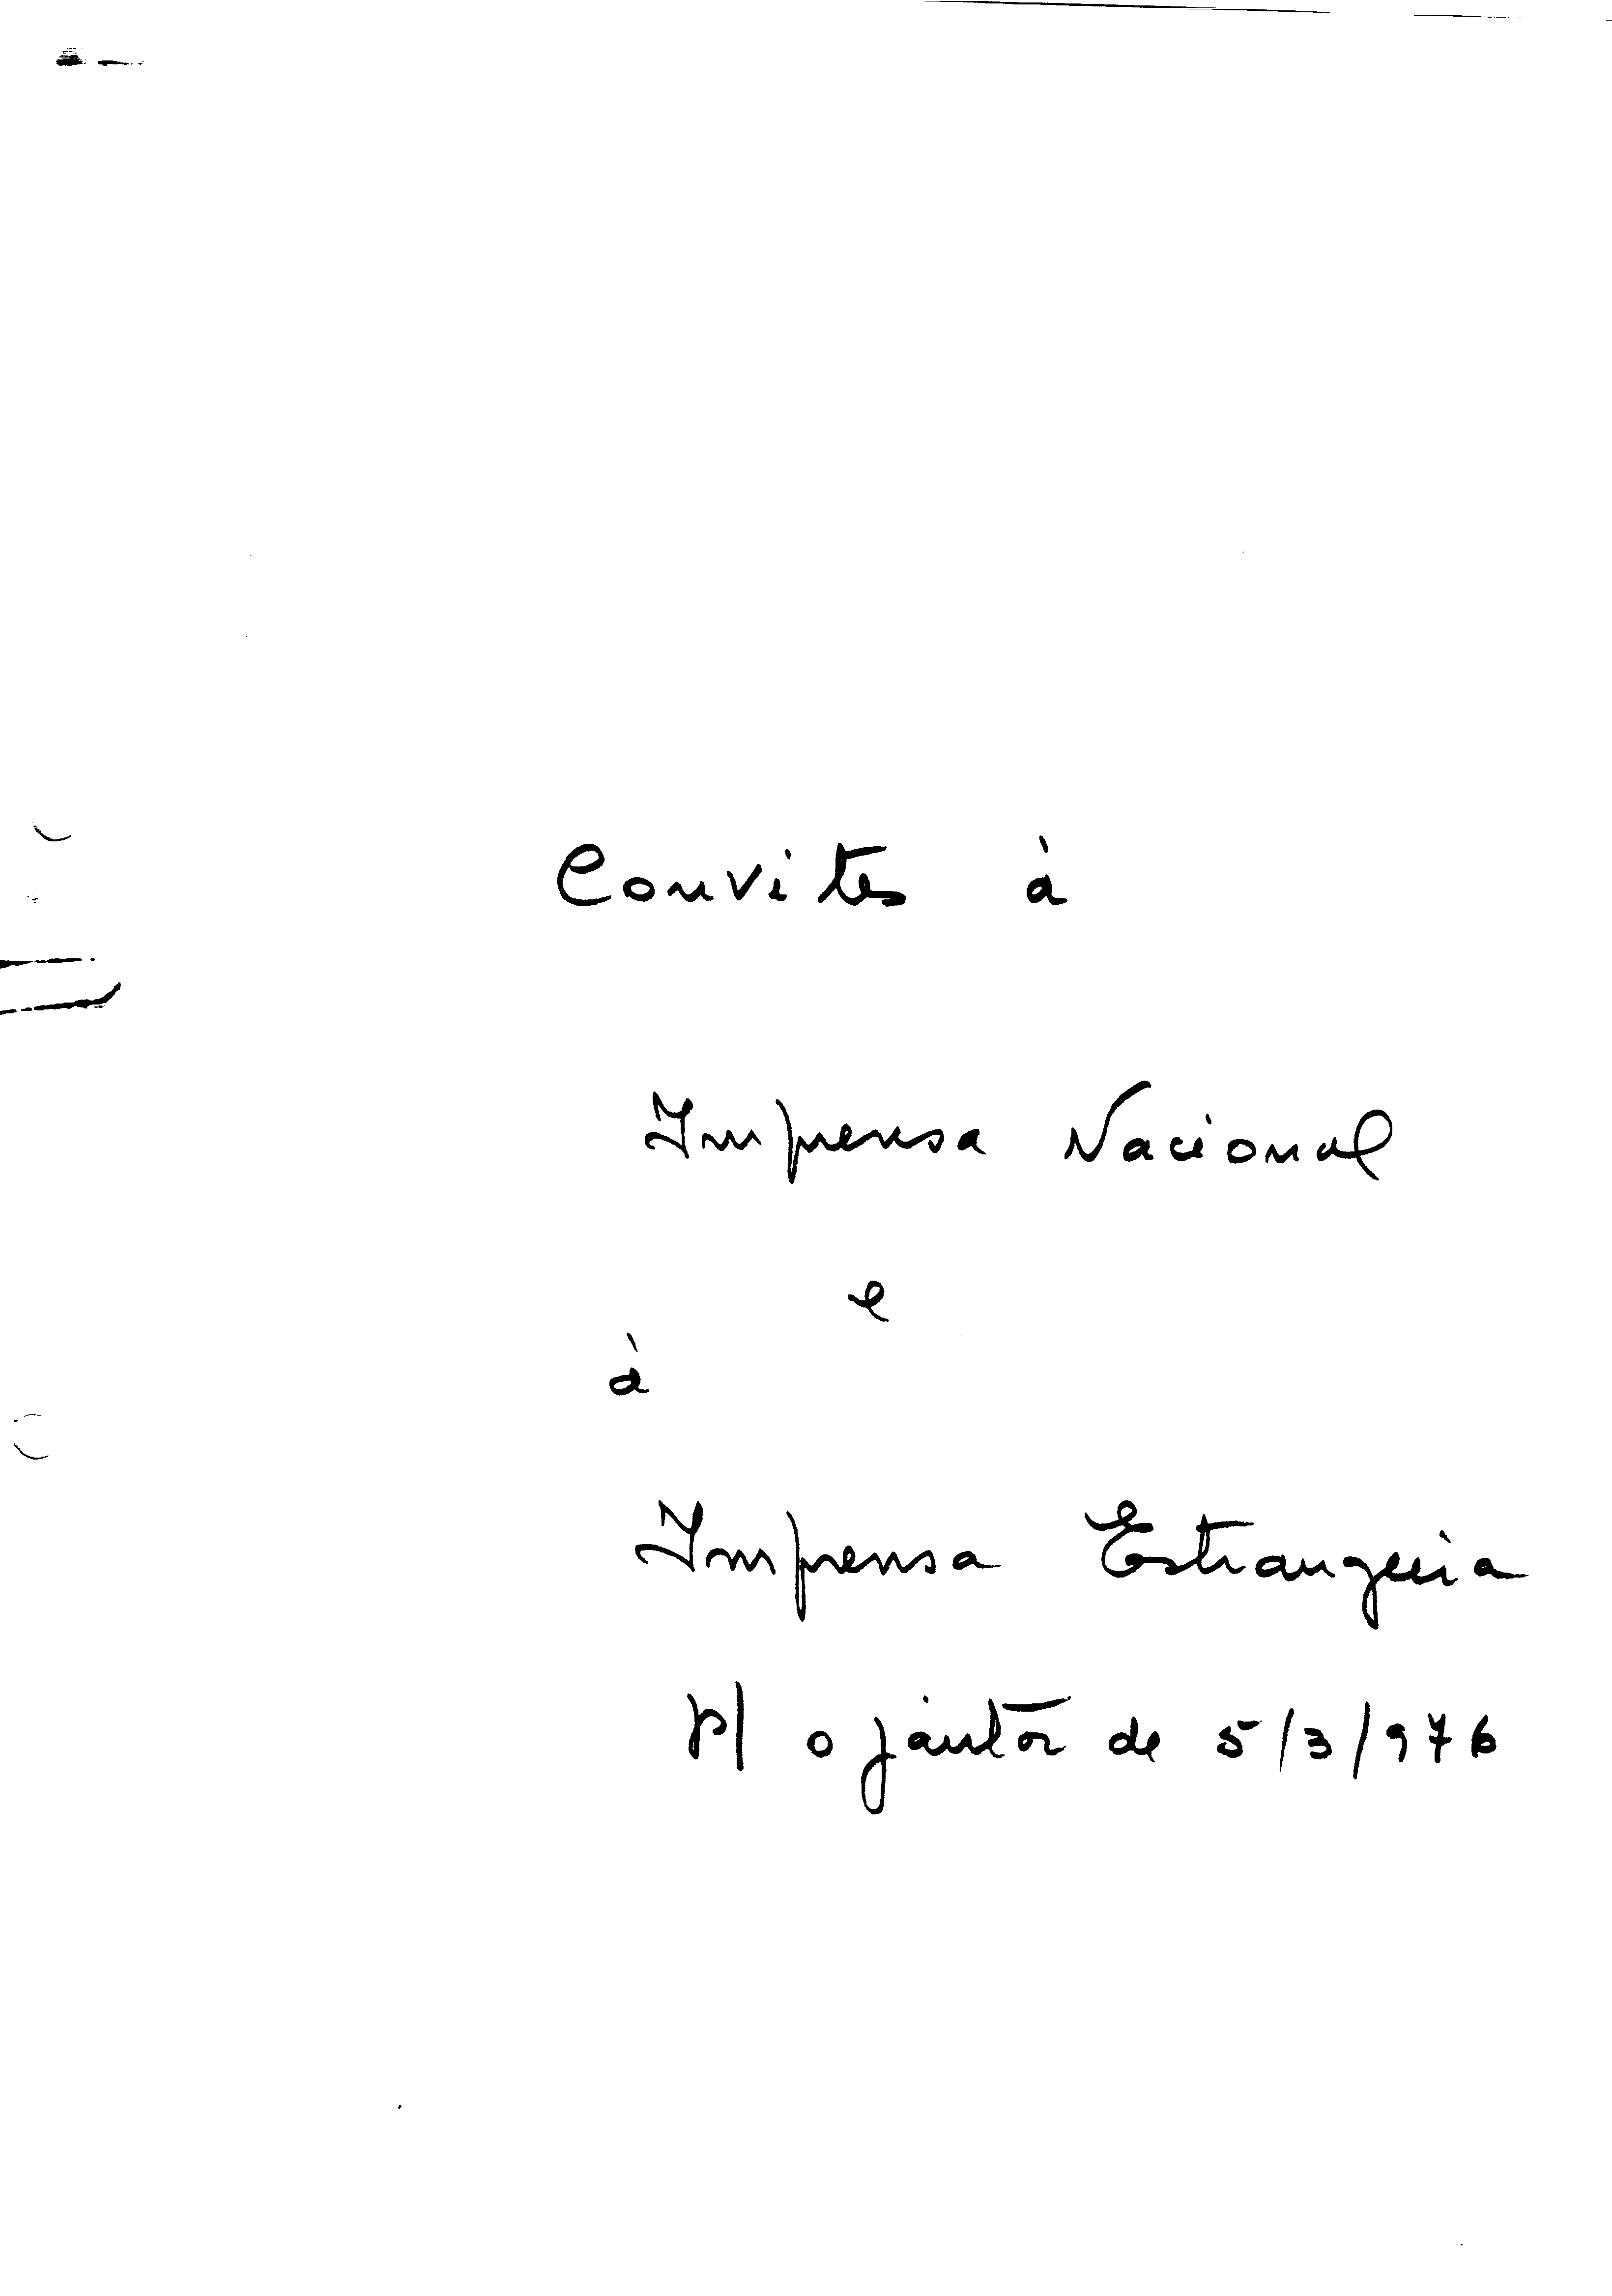 Convites à
Imprensa Nacional
e
à
Imprensa Estrangeira
P/ o jantar de 5/3/976